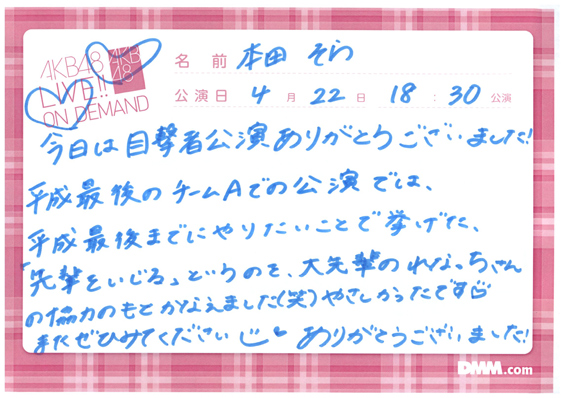 AKB48
LIVE!!
ON DEMAND
AKB
48
名前 本田 そら
公演日 4月22日 18:30公演
今日は目撃者公演ありがとうございました!
平成最後のチームAでの公演では、
平成最後までにやりたいことで挙げた、
「先輩をいじる」というのを、大先輩のれなっちさん
の協力のもとかなえました(笑)やさしかったです♡
またぜひみてください ありがとうございました!
DMM.com